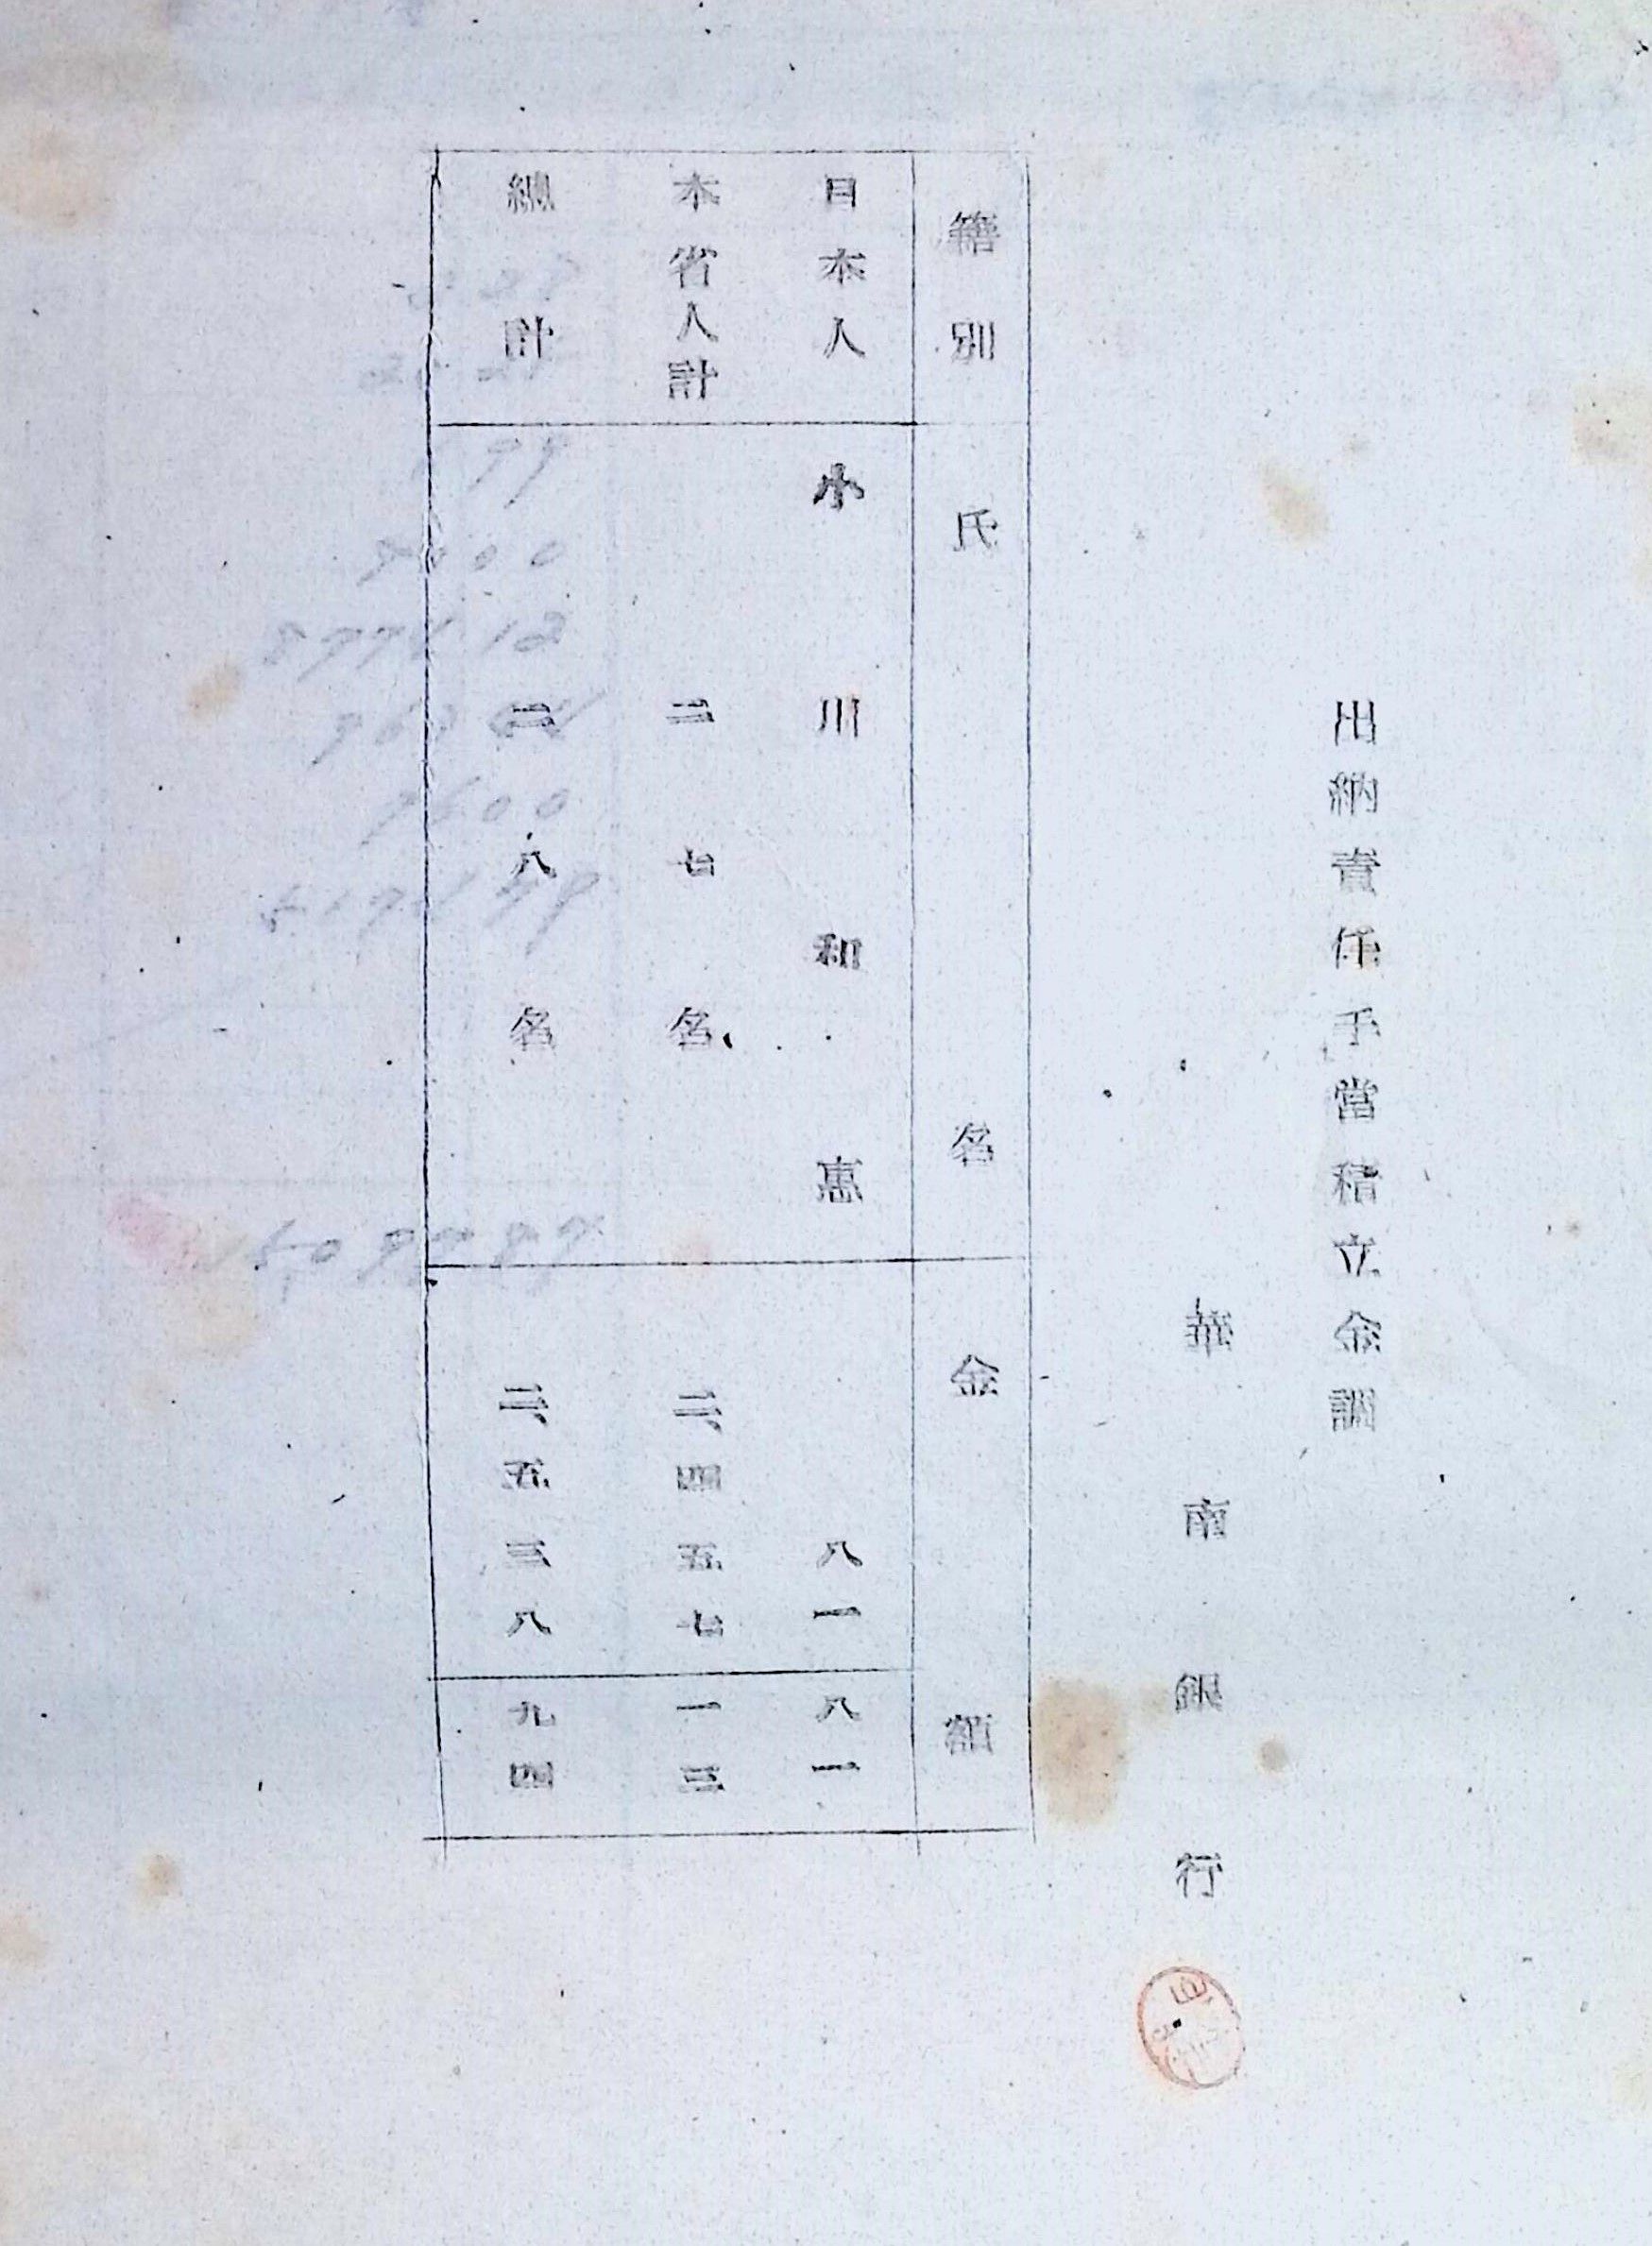 出納責任手當積立金調
華南銀行
籍別 氏名 金額
日本人 小川和惠 八一 八一
本省人計 二七名 二、四五七 一三
總計 二八名 二、五三八 九四